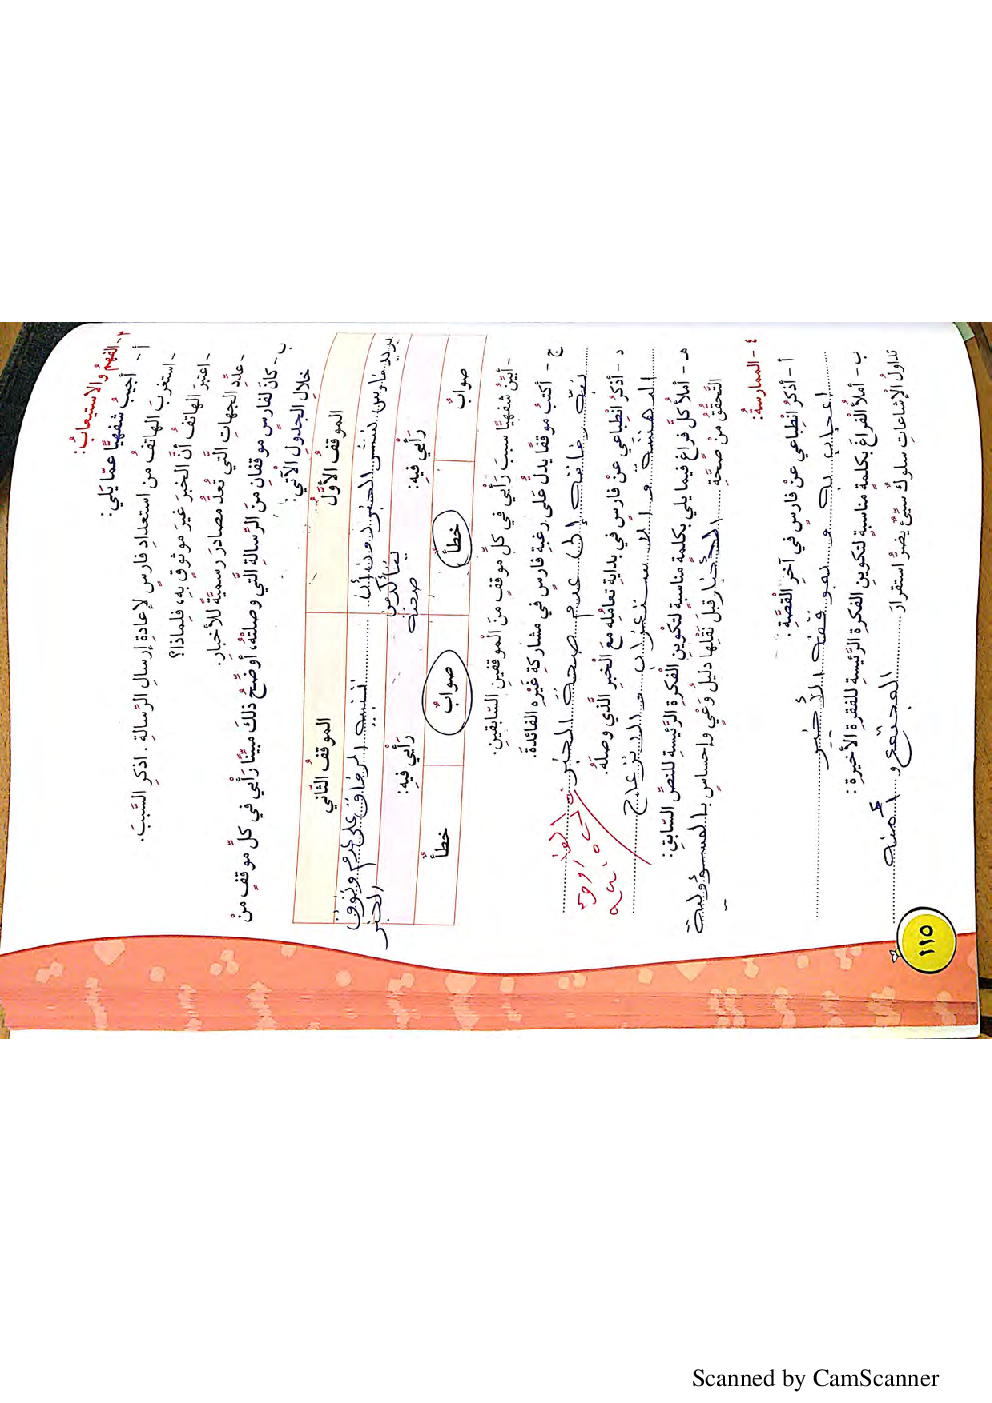 ٣- الفهم والاستيعاب:
أ- أجيبُ شفهيًّا عمّا يَلي:
- استغربَ الهاتفُ من استعدادِ فارسٍ لإعادةِ إرسالِ الرّسالةِ. اذكرِ السّببَ.
- اعتبرَ الهاتفُ أنَّ الخبرَ غيرَ موثوقٍ به، فلِماذا؟
- عدِّدِ الجهاتِ الّتي تُعدُّ مصادرَ رسميَّةً للأخبارِ.
ب- كانَ لفارسٍ موقفانِ منَ الرّسالةِ الّتي وصلتْهُ، أوضّحُ ذلكَ مبيِّنًا رَأيي في كلِّ موقفٍ مِنْ
خلالِ الجدولِ الآتي:
الموقفُ الأوّلُ
الموقفُ الثّاني
يريد فارس نشر الخبر دون أن
يتأكد من
صحته
على
الخبر
رَأيي فيهِ:
رَأيي فيهِ:
صوابٌ
خطأٌ
صوابٌ
خطأٌ
- أبيّنُ شفهيًّا سببَ رَأيي في كلِّ موقفٍ منَ الموقفينِ السّابقينِ.
ج- أكتبُ موقفًا يدلُّ على رغبةِ فارسٍ في مشاركةِ غيرِهِ الفائدةَ.
إلى عدم صحة الخبر
د- أذكرُ انطباعي عنْ فارسٍ في بدايةِ تعامُلِهِ معَ الخبرِ الّذي وصلَهُ.
الدهشة والاستغراب والانزعاج
هـ- أملأُ كلَّ فراغٍ فيما يلي بكلمةٍ مناسبةٍ لتكوينِ الفكرةِ الرّئيسةِ للنصِّ السّابقِ:
التّحقّقُ منْ صحَّةِ الأخبار قبلَ نقْلِها دليلُ وَعْيٍ وإحساسٍ بـ المسؤولية
٤- الممارسةُ:
أ- أذكرُ انطباعي عنْ فارسٍ في آخرِ القصّةِ:
إعجاب به وبموقفه الأخير
ب- أملأُ الفراغَ بكلمةٍ مناسبةٍ لتكوينِ الفكرةِ الرّئيسةِ للفقرةِ الأخيرةِ:
تداولُ الإشاعاتِ سلوكٌ سيّئٌ يضرُّ استقرارَ المجتمع وأمنه
١١٥
Scanned by CamScanner